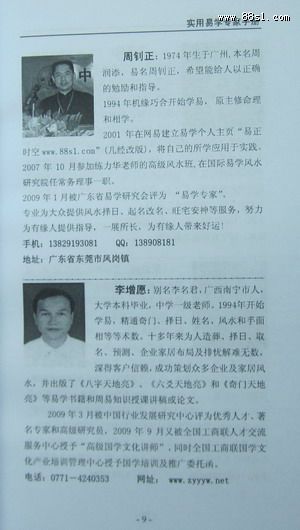 www.88sl.com
实用易学专家手册
周钊正：1974年生于广州,本名周
润添，易名周钊正，希望能给人以正确
的勉励和指导。
1994年机缘巧合开始学易， 原主修命理
和相学。
2001 年在网易建立易学个人主页 “易正
时空 www.88s1.com”(几经改版)，将自己的所学应用于实践。
2007 年 10 月参加练力华老师的高级风水班,在国际易学风水
研究院任常务理事一职。
2009 年1月被广东省易学研究会评为 “易学专家”。
专业为大众提供风水择日、起名改名、旺宅安神等服务，努力
为有缘人提供指导，一展所长，为有缘人带来好运!
手机：13829193081 QQ：138908181
地址：广东省东莞市凤岗镇
李增愿：别名李名君，广西南宁市人，
大学本科毕业，中学一级老师。1994年开始
学易，精通奇门、择日、姓名、风水和手面
相等等术数。十多年来为人造葬、择日、取
名、预测、企业家居布局及排忧解难无数，
深得客户信赖，成功策划众多企业及家居风
水，并出版了《八字天地亮》、《六爻天地亮》和《奇门天地
亮》等易学书籍和周易知识授课讲稿或论文。
2009 年 3 月被中国行业发展研究中心评为优秀人才、著
名专家和高级研究员，2009 年 9 月又被全国工商联人才交流
服务中心授予“高级国学文化讲师”,同时全国工商联国学文
化产业培训管理中心授予国学培训及推广委托函。
电话：0771-4240353 网址： www.zyyyw.net
- 9 -